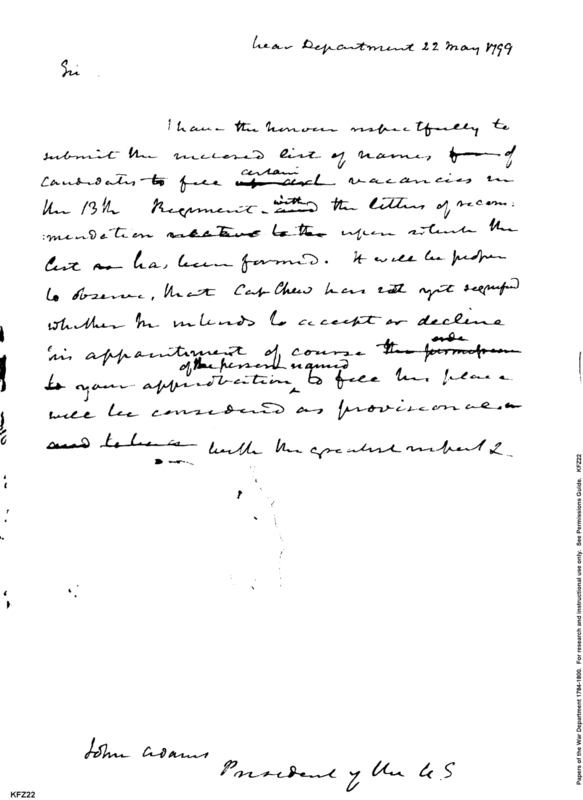 War Department 22 May 1799
Sir
I have the honour respectfully to
submit the inclosed list of names of
candidates to fill certain vacancies in
the 13th Regiment with the letters of recom:
:mendation relative to the upon which the
list has been formed. It will be proper
to observe, that Cap Chew has not yet signified
whether he intends to accept or decline
his appointment of course
to your approbation of the person named to fill his place
will be considered as provisional
and to have with the greatest respect &
John Adams
President of the U.S
KFZ22
Papers of the War Department 1784-1800. For research and instructional use only. See Permissions Guide. KFZ22